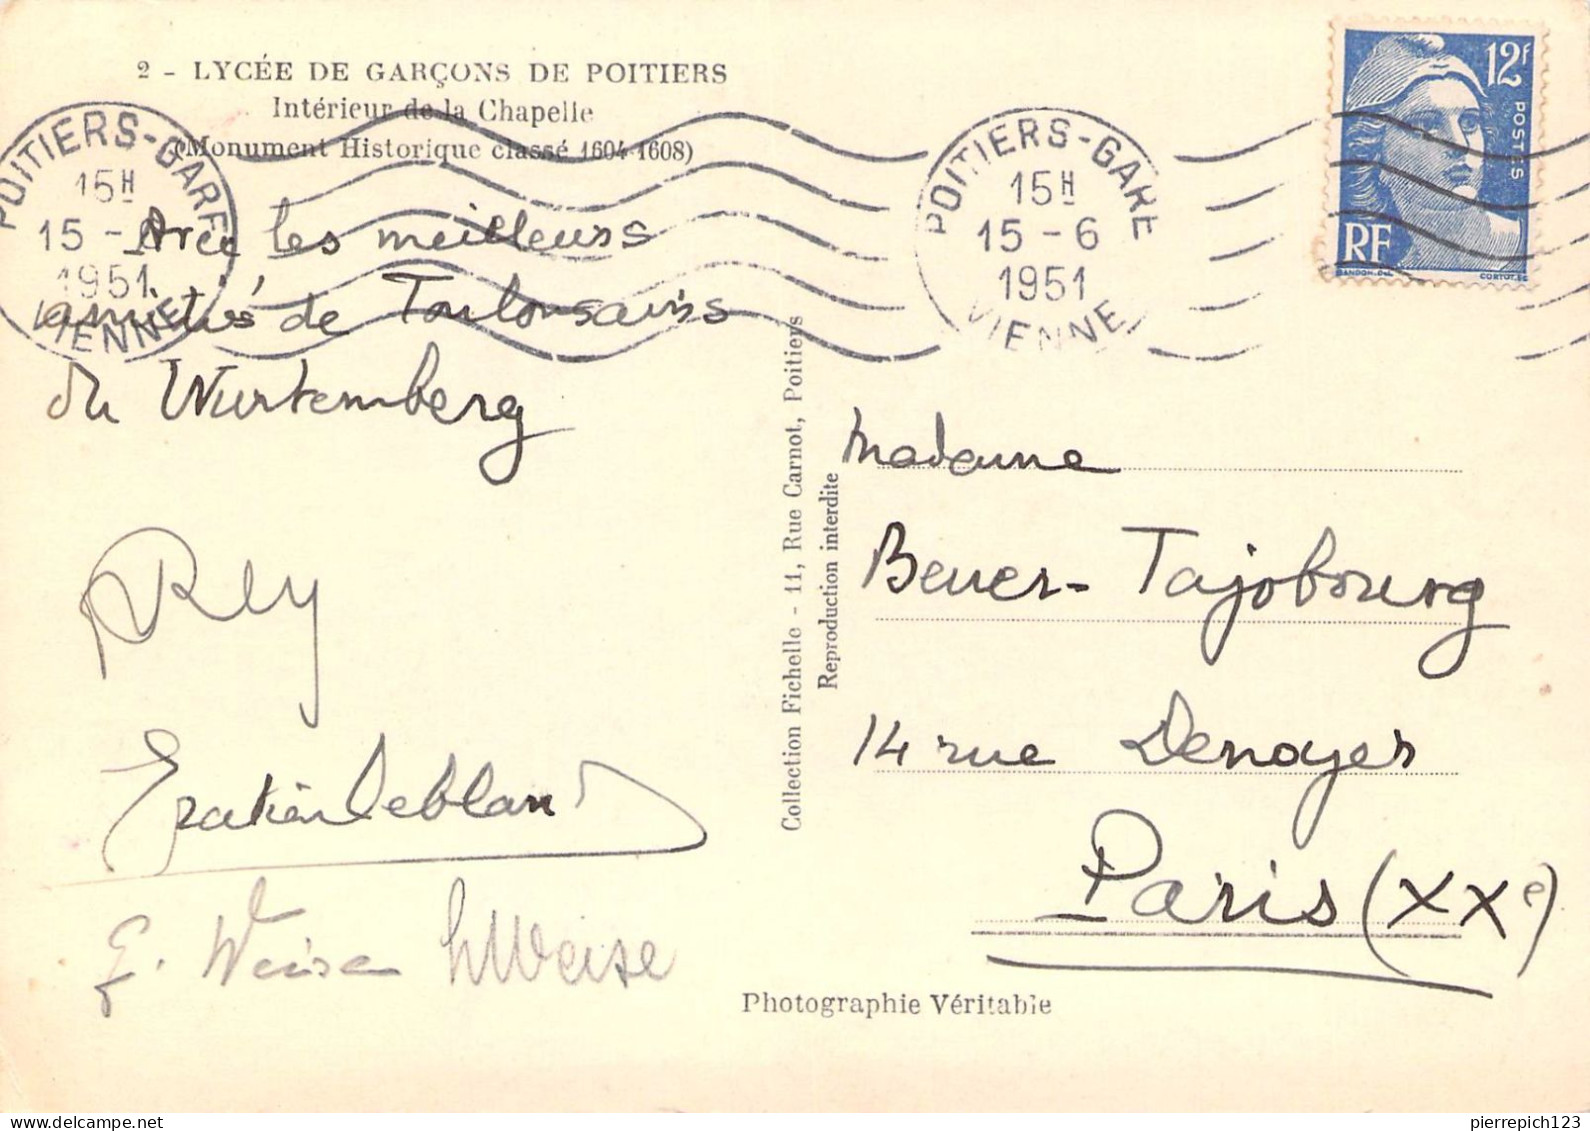 2 - LYCÉE DE GARÇONS DE POITIERS
Intérieur de la Chapelle
(Monument Historique classé 1604-1608)
POITIERS-GARE
15H
15 -
1951
VIENNE
POITIERS-GARE
15H
15 - 6
1951
VIENNE
12F
POSTES
RF
GANDON.DEL
CORTOT.SC
Avec les meilleurs
amitiés de Toulousains
du Wurtemberg
Rey
Leblanc
Collection Fichelle - 11, Rue Carnot, Poitiers
Reproduction interdite
Madame
Bener-Tajobourg
14 rue Denoyer
Paris (XXe)
Photographie Véritable
pierrepich123